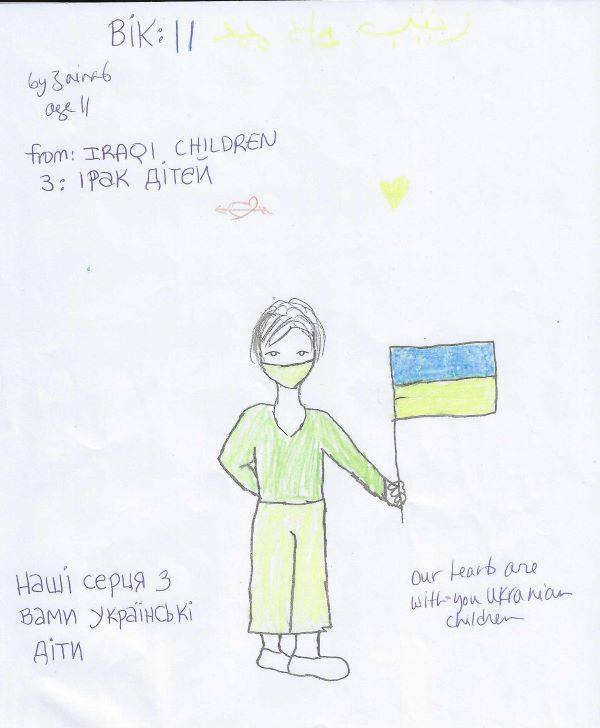 Вік: 11 زينب
by Zainab
age 11
from: IRAQI CHILDREN
З: ІРаК ДІТЕЙ
Наші серця З
Вами Українські
Діти
our hearts are
with you Ukranian
children